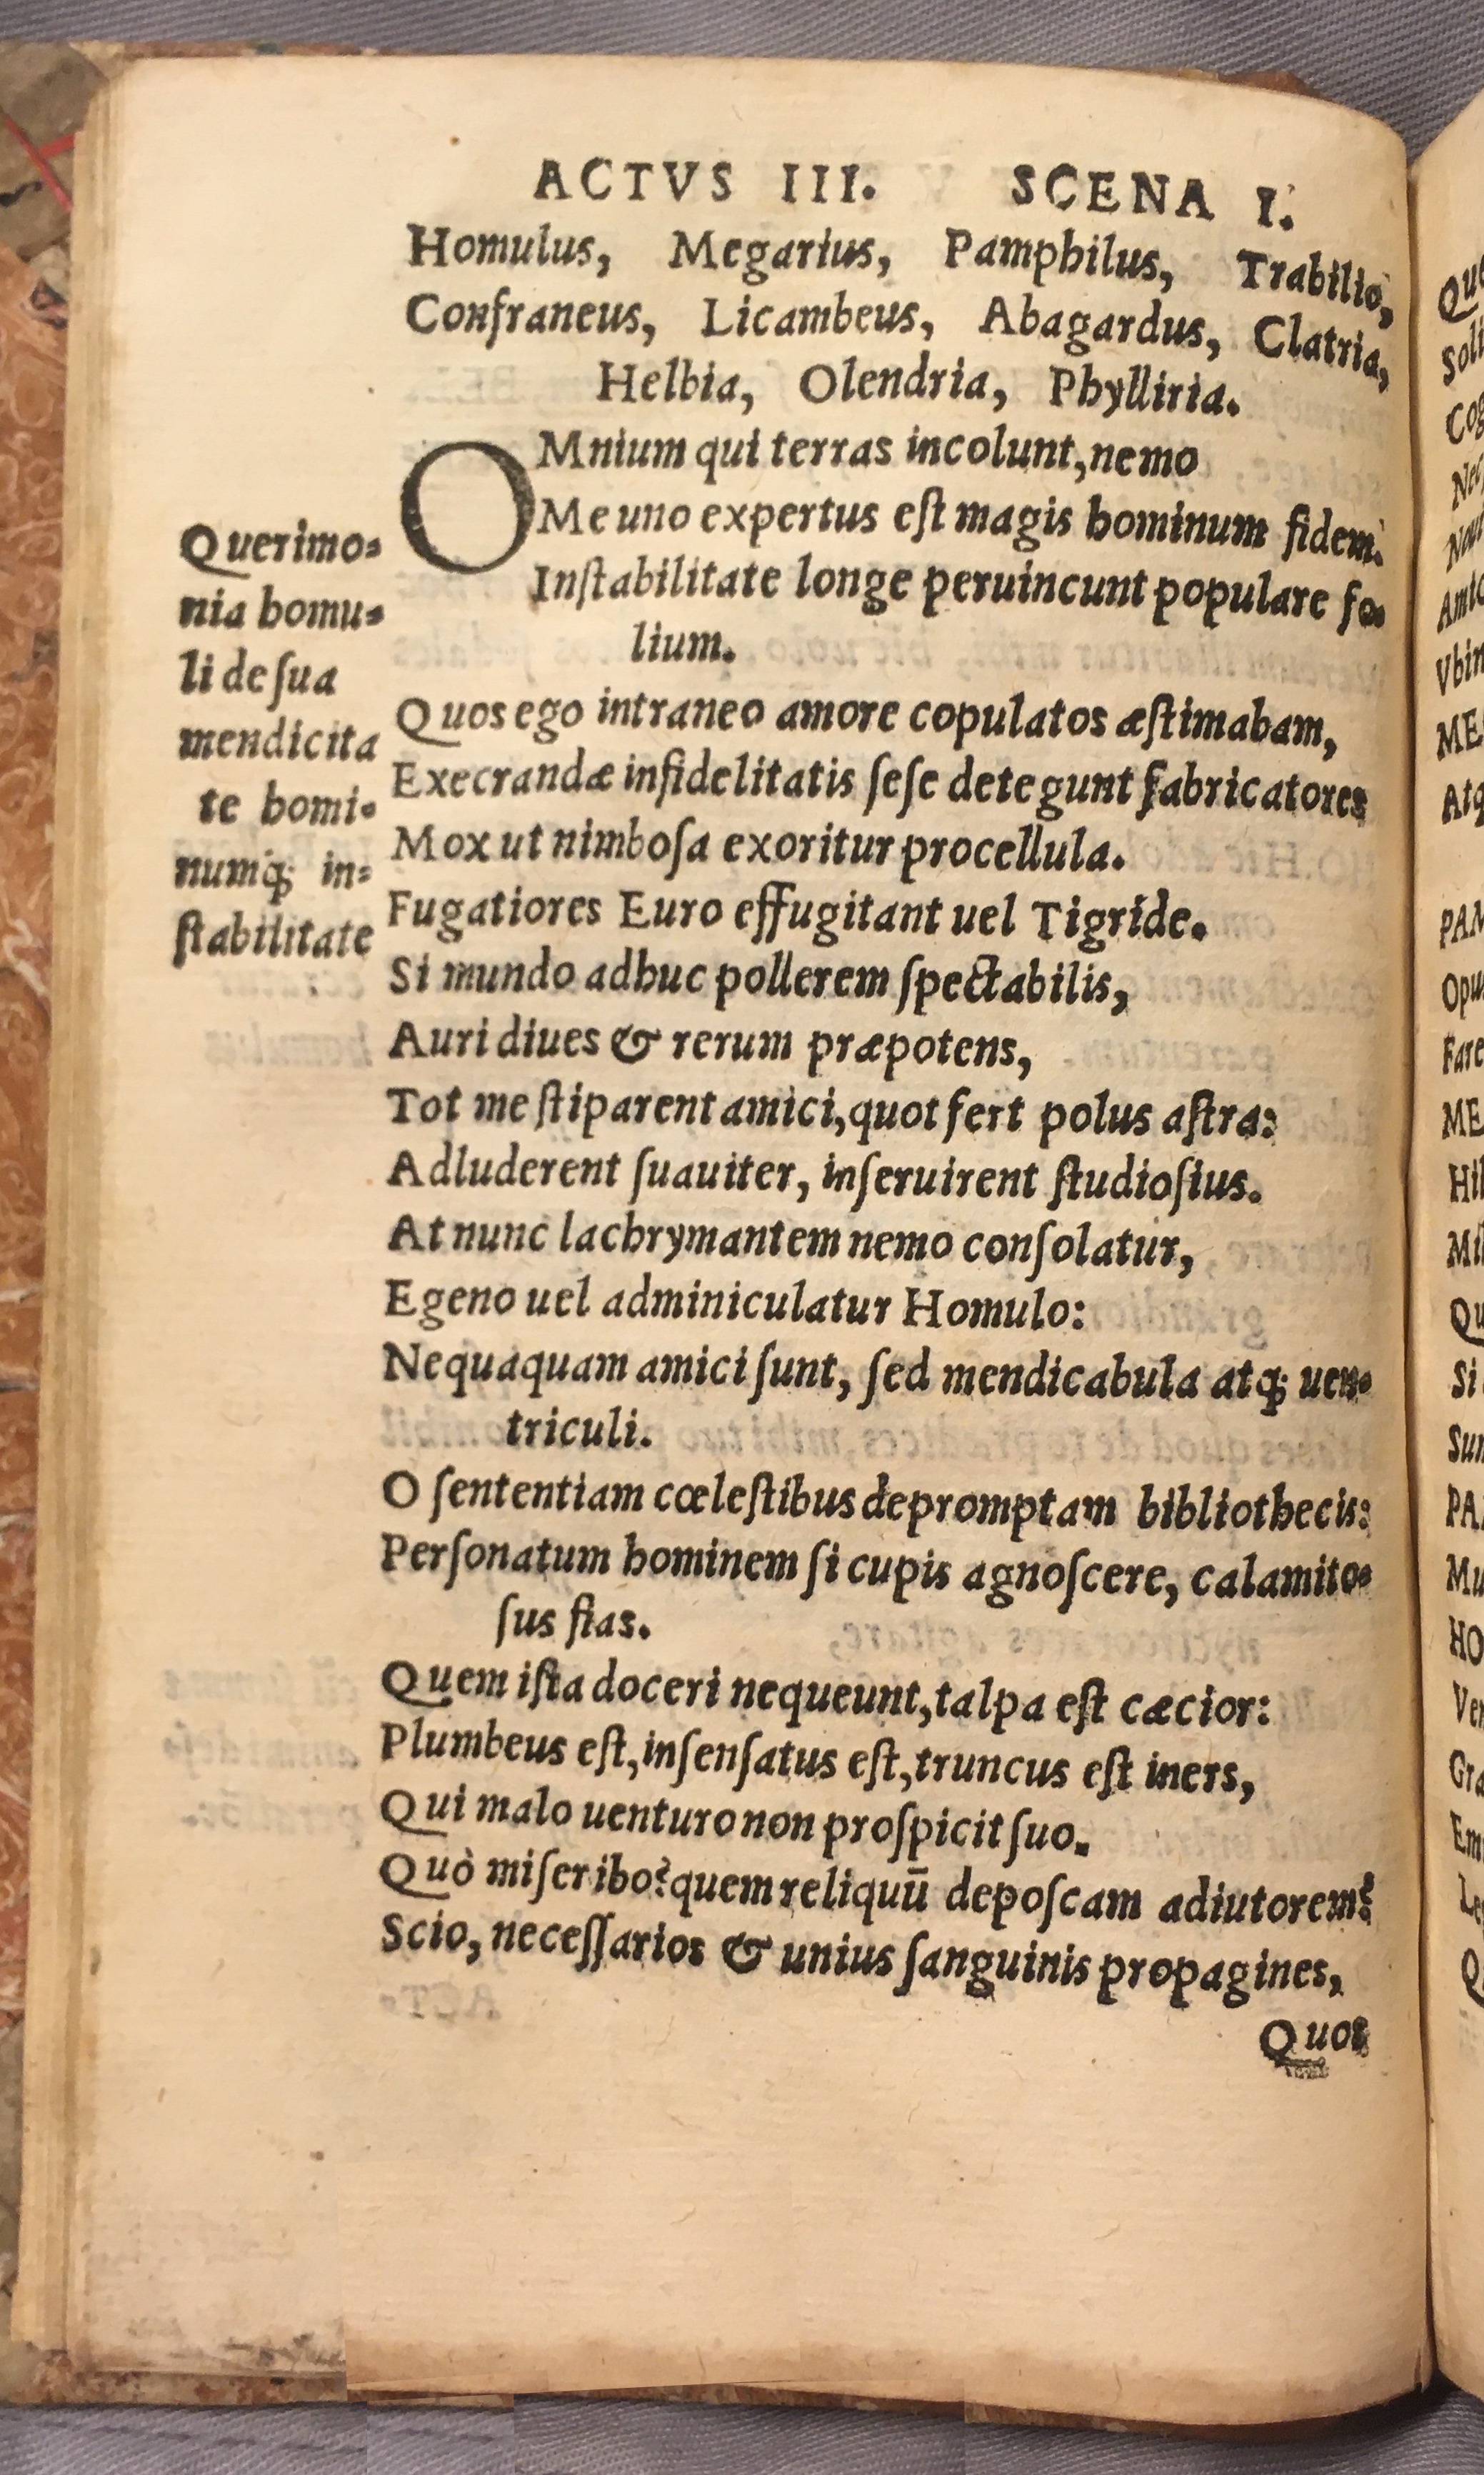 ACTVS III. SCENA I.
Homulus, Megarius, Pamphilus, Trabilio,
Confraneus, Licambeus, Abagardus, Clatria,
Helbia, Olendria, Phylliria.
OMnium qui terras incolunt,nemo
Me uno expertus eſt magis hominum fidem.
Inſtabilitate longe peruincunt populare fo-
lium.
Quos ego intraneo amore copulatos æſtimabam,
Execrandæ infidelitatis ſeſe detegunt fabricatores
Mox ut nimboſa exoritur procellula.
Fugatiores Euro effugitant uel Tigride.
Si mundo adhuc pollerem ſpectabilis,
Auri diues & rerum præpotens,
Tot me ſtiparent amici,quot fert polus aſtra:
Adluderent ſuauiter, inſeruirent ſtudioſius.
At nunc lachrymantem nemo conſolatur,
Egeno uel adminiculatur Homulo:
Nequaquam amici ſunt, ſed mendicabula atq; uen-
triculi.
O ſententiam cœleſtibus depromptam bibliothecis:
Perſonatum hominem ſi cupis agnoſcere, calamito-
ſus fias.
Quem iſta doceri nequeunt,talpa eſt cæcior:
Plumbeus eſt,inſenſatus eſt,truncus eſt iners,
Qui malo uenturo non proſpicit ſuo.
Quò miſer ibo?quem reliquū depoſcam adiutorem?
Scio, neceſſarios & unius ſanguinis propagines,
Quot
Querimo-
nia homu-
li de ſua
mendicita
te homi-
numq; in-
ſtabilitate
Soli
Cog
Vbin
ME
Atq
PAM
Opu
Fare
ME
Hil
Mil
Qu
Si
Sun
PA
Mu
HO
Ver
Gra
Em